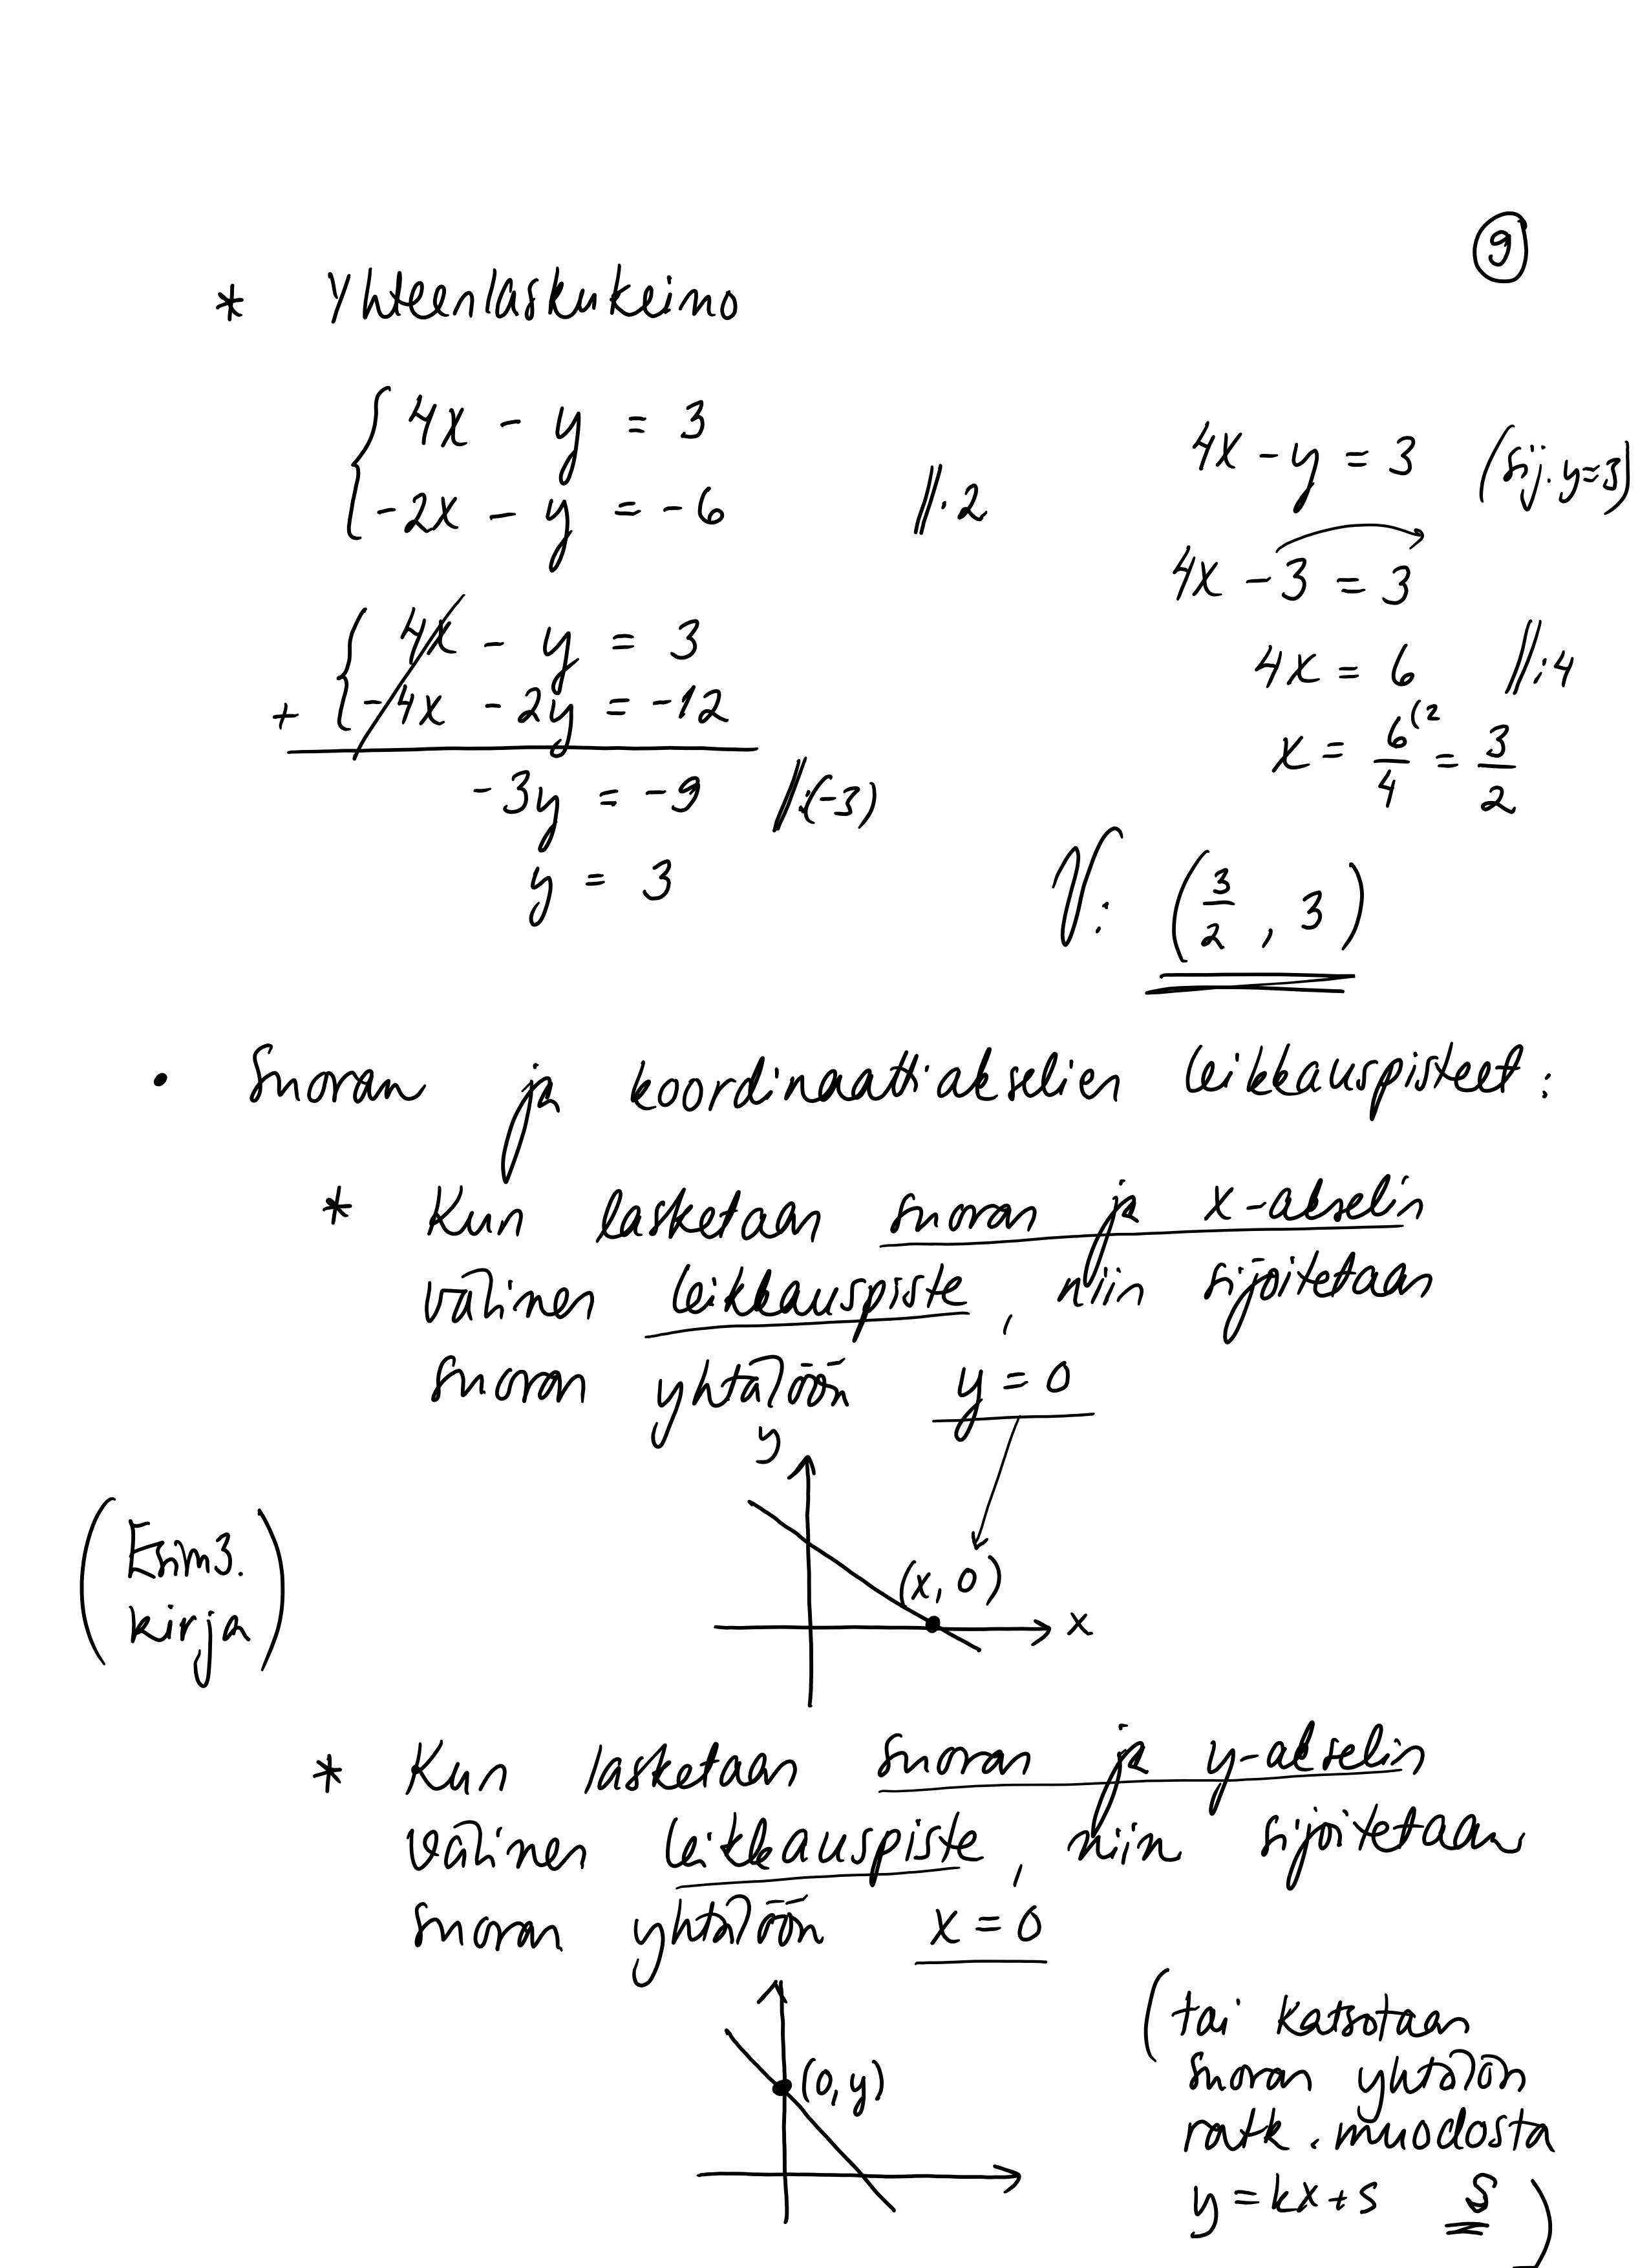 9
* Yhteenlaskukeino
4x - y = 3
-2x - y = -6 ||·2
4x - y = 3
+ -4x - 2y = -12
-3y = -9 ||:(-3)
y = 3
4x - y = 3 (sij. y=3)
4x - 3 = 3
4x = 6 ||:4
x = 6/4 (2 = 3/2
V: (3/2, 3)
• Suoran ja koordinaattiakselien leikkauspisteet:
* Kun lasketaan suoran ja x-akselin
välinen leikkauspiste, niin sijoitetaan
suoran yhtälöön y = 0
y
(x, 0)
x
(Esim3.
kirja)
* Kun lasketaan suoran ja y-akselin
välinen leikkauspiste, niin sijoitetaan
suoran yhtälöön x = 0
(0, y)
(tai katsotaan
suoran yhtälön
ratk. muodosta
y = kx + s s)